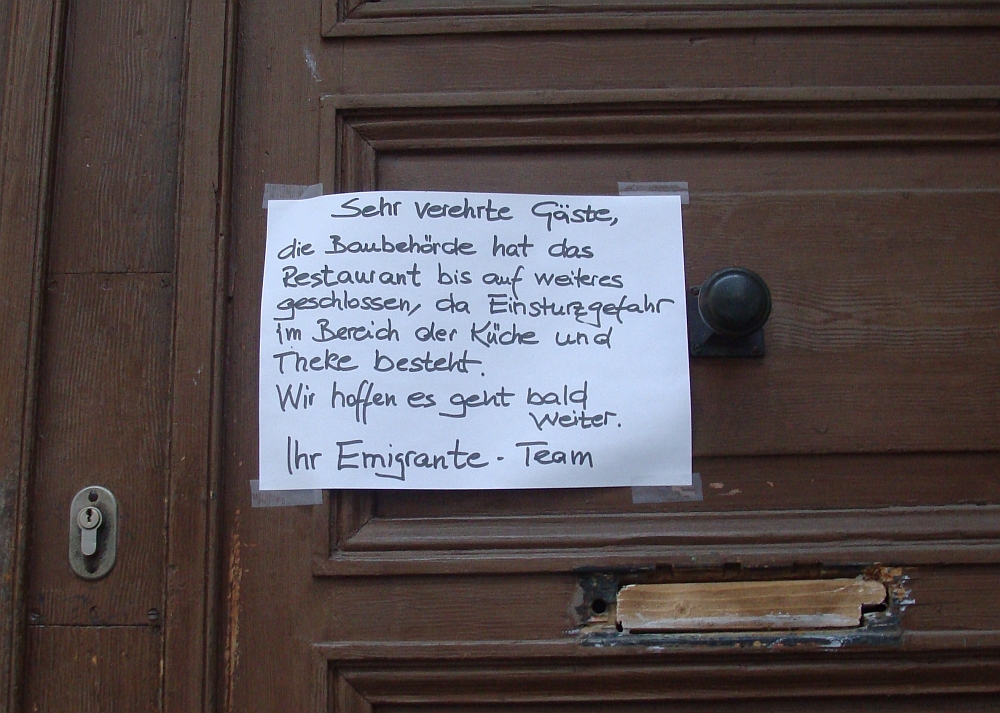 Sehr verehrte Gäste,
die Baubehörde hat das
Restaurant bis auf weiteres
geschlossen, da Einsturzgefahr
im Bereich der Küche und
Theke besteht.
Wir hoffen es geht bald
weiter.
Ihr Emigrante - Team